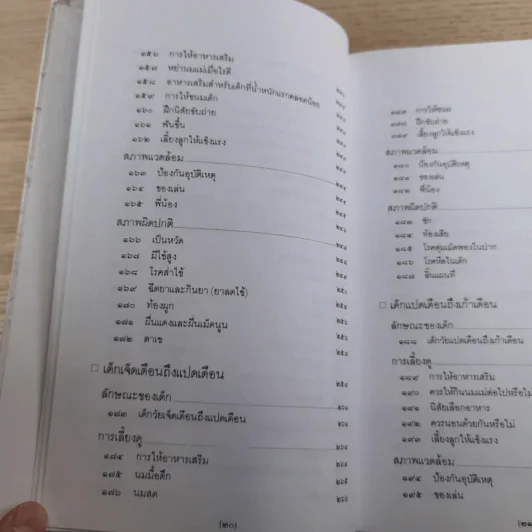 ๑๕๖ การให้อาหารเสริม
๑๕๗ หย่านมแม่เมื่อไรดี
๑๕๘ อาหารเสริมสำหรับเด็กที่น้ำหนักแรกคลอดน้อย
๑๕๙ การให้ขนมเด็ก
๑๖๐ ฝึกนิสัยขับถ่าย
๑๖๑ ฟันขึ้น
๑๖๒ เลี้ยงลูกให้แข็งแรง
สภาพแวดล้อม
๑๖๓ ป้องกันอุบัติเหตุ
๑๖๔ ของเล่น
๑๖๕ พี่น้อง
สภาพผิดปกติ
๑๖๖ เป็นหวัด
๑๖๗ มีไข้สูง
๑๖๘ โรคส่าไข้
๑๖๙ ฉีดยาและกินยา (ยาลดไข้)
๑๗๐ ท้องผูก
๑๗๑ ผื่นแดงและผื่นเม็ดนูน
๑๗๒ ตาเข
เด็กเจ็ดเดือนถึงแปดเดือน
ลักษณะของเด็ก
๑๗๓ เด็กวัยเจ็ดเดือนถึงแปดเดือน
การเลี้ยงดู
๑๗๔ การให้อาหารเสริม
๑๗๕ นมมื้อดึก
๑๗๖ นมสด
(๒๐)
การให้ขนม
ฝึกขับถ่าย
เลี้ยงลูกให้แข็งแรง
สภาพแวดล้อม
๑๘๐ ป้องกันอุบัติเหตุ
๑๘๑ ของเล่น
๑๘๒ พี่น้อง
สภาพผิดปกติ
๑๘๓ ชัก
๑๘๔ ท้องเสีย
๑๘๕ โรคตุ่มเม็ดพองในปาก
๑๘๖ โรคหืดในเด็ก
ลิ้นแผนที่
เด็กแปดเดือนถึงเก้าเดือน
ลักษณะของเด็ก
๑๘๘ เด็กวัยแปดเดือนถึงเก้าเดือน
การเลี้ยงดู
๑๘๙ การให้อาหารเสริม
๑๙๐ ควรให้กินนมแม่ต่อไปหรือไม่
๑๙๑ นิสัยเลือกอาหาร
๑๙๒ ควรนอนด้วยกันหรือไม่
๑๙๓ เลี้ยงลูกให้แข็งแรง
สภาพแวดล้อม
๑๙๔ ป้องกันอุบัติเหตุ
๑๙๕ ของเล่น